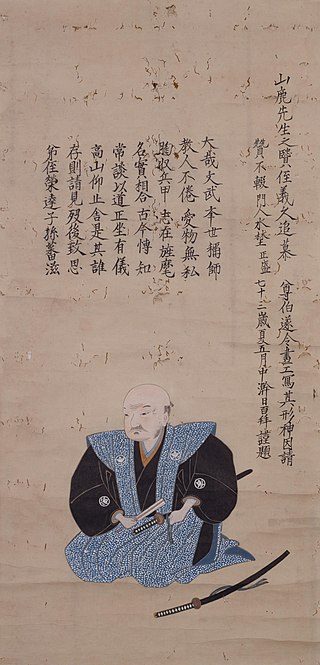 山鹿先生之贒侄義久追慕 尊伯遂令畫工寫其形神因請
贊不輟門人水埜正盛七十二歳夏五月中澣日百拜謹題
大哉文武本世稱師
教人不倦愛物無私
収兵甲志在旌麾
名實相合古今傳知
常談以道正坐有儀
高山仰止舍是其誰
存則請見歿後致思
弟侄榮達子孫蕃滋